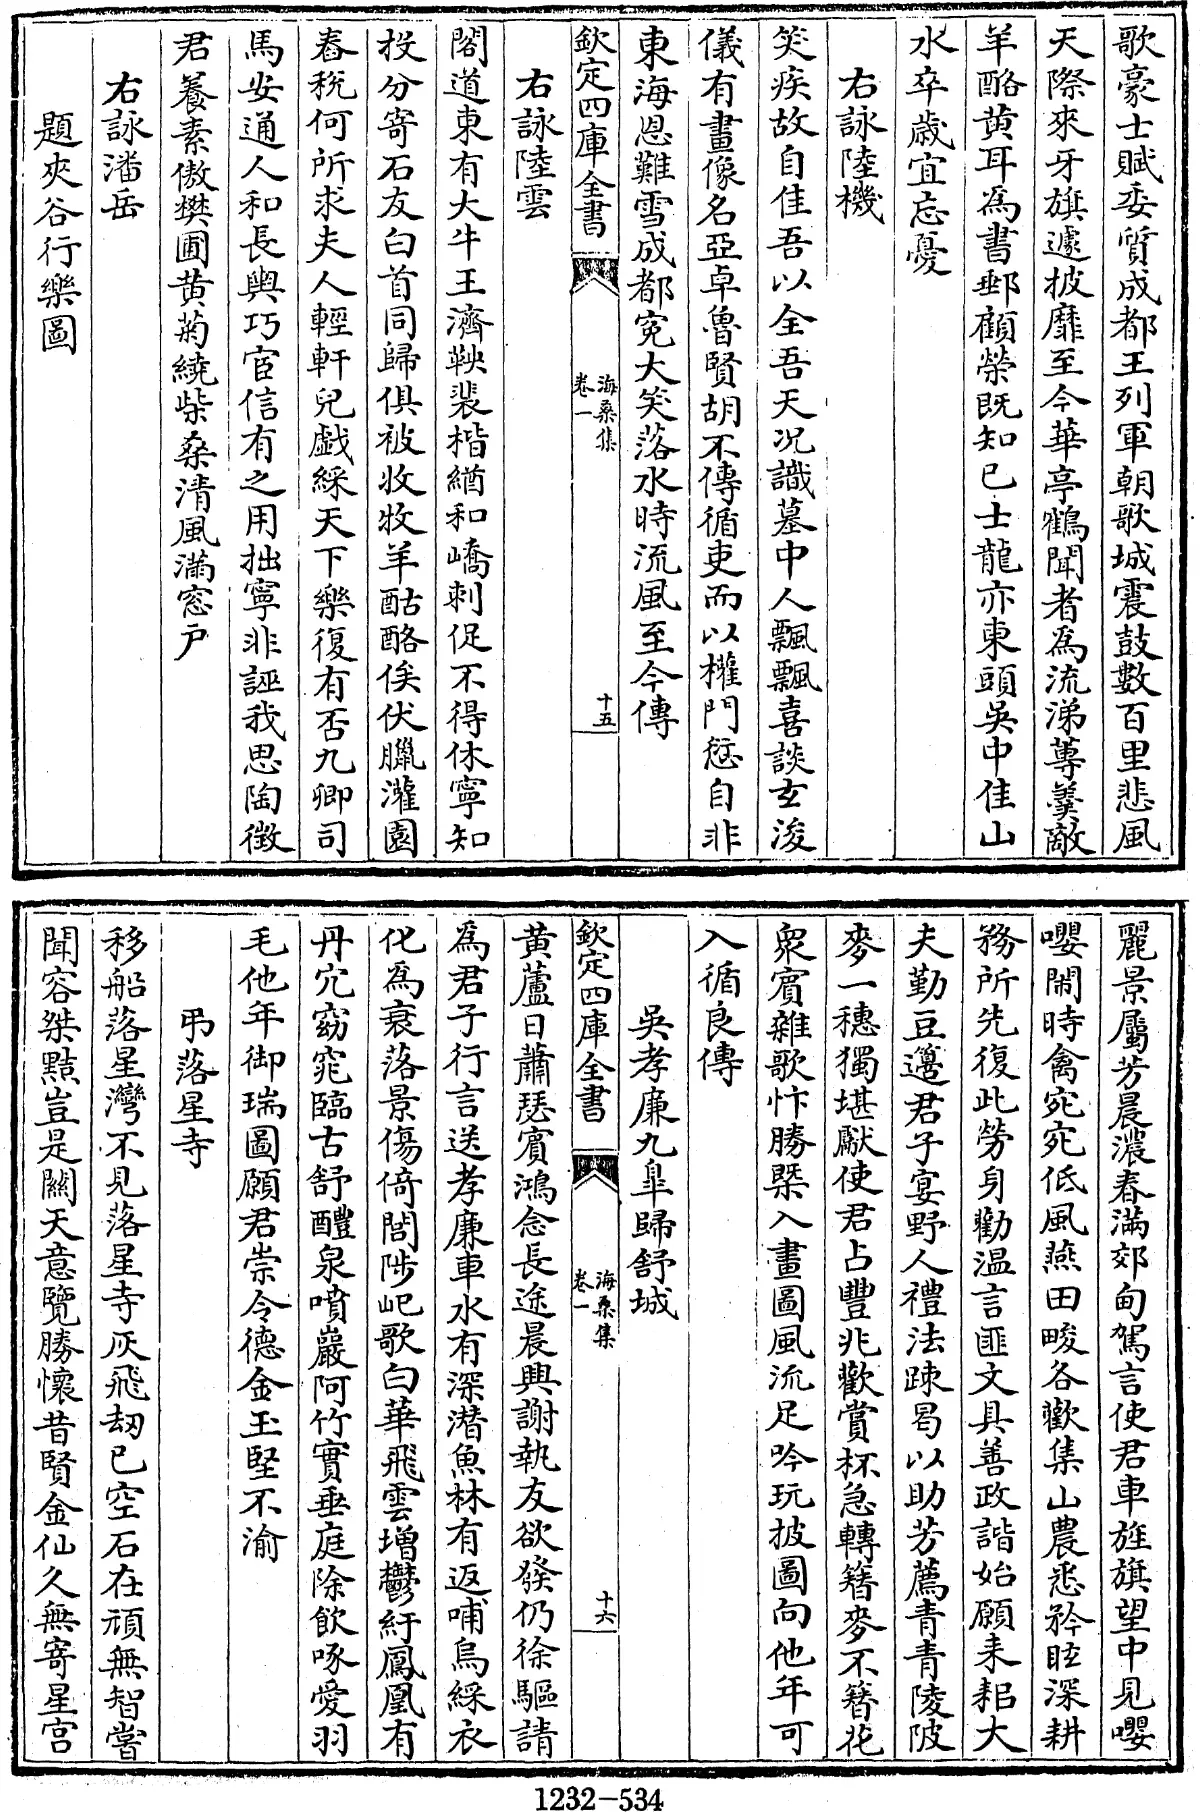 歌豪士賦委質成都王列軍朝歌城震鼓數百里悲風
天際來牙旗遽披靡至今華亭鶴聞者為流涕蓴羹敵
羊酪黄耳為書郵顧榮既知已士龍亦東頭吳中佳山
水卒歲宜忘憂
右詠陸機
笑疾故自佳吾以全吾天况識墓中人飄飄喜談玄浚
儀有畫像名亞卓魯賢胡不傳循吏而以權門愆自非
東海恩難雪成都寃大笑落水時流風至今傳
欽定四庫全書
海桑集
卷一
十五
右詠陸雲
閣道東有大牛王濟鞅裴楷緧和嶠刺促不得休寧知
投分寄石友白首同歸俱被收牧羊酤酪俟伏臘灌園
舂税何所求夫人輕軒兒戯綵天下樂復有否九卿司
馬安通人和長輿巧宦信有之用拙寧非誣我思陶徵
君養素傲樊圃黄菊繞柴桑清風滿窓户
右詠潘岳
題夾谷行樂圖
麗景屬芳晨濃春滿郊甸駕言使君車旌旗望中見嚶
嚶閙時禽宛宛低風燕田畯各歡集山農悉矜眩深耕
務所先復此勞身勸温言匪文具善政諧始願耒耜大
夫勤豆籩君子宴野人禮法疎曷以助芳薦青青陵陂
麥一穗獨堪獻使君占豐兆歡賞杯急轉簮麥不簮花
衆賓雜歌忭勝槩入畫圖風流足吟玩披圖向他年可
入循良傳
吳孝廉九臯歸舒城
欽定四庫全書
海桑集
卷一
十六
黄蘆日蕭瑟賓鴻念長途晨興謝執友欲發仍徐驅請
為君子行言送孝廉車水有深潜魚林有返哺烏綵衣
化為衰落景傷倚閭陟屺歌白華飛雲增鬱紆鳳凰有
丹穴窈窕臨古舒醴泉噴巖阿竹實垂庭除飲啄愛羽
毛他年御瑞圖願君崇令德金玉堅不渝
弔落星寺
移船落星灣不見落星寺灰飛刼已空石在頑無智嘗
聞容桀黠豈是關天意覽勝懷昔賢金仙久無寄星宫
1232-534